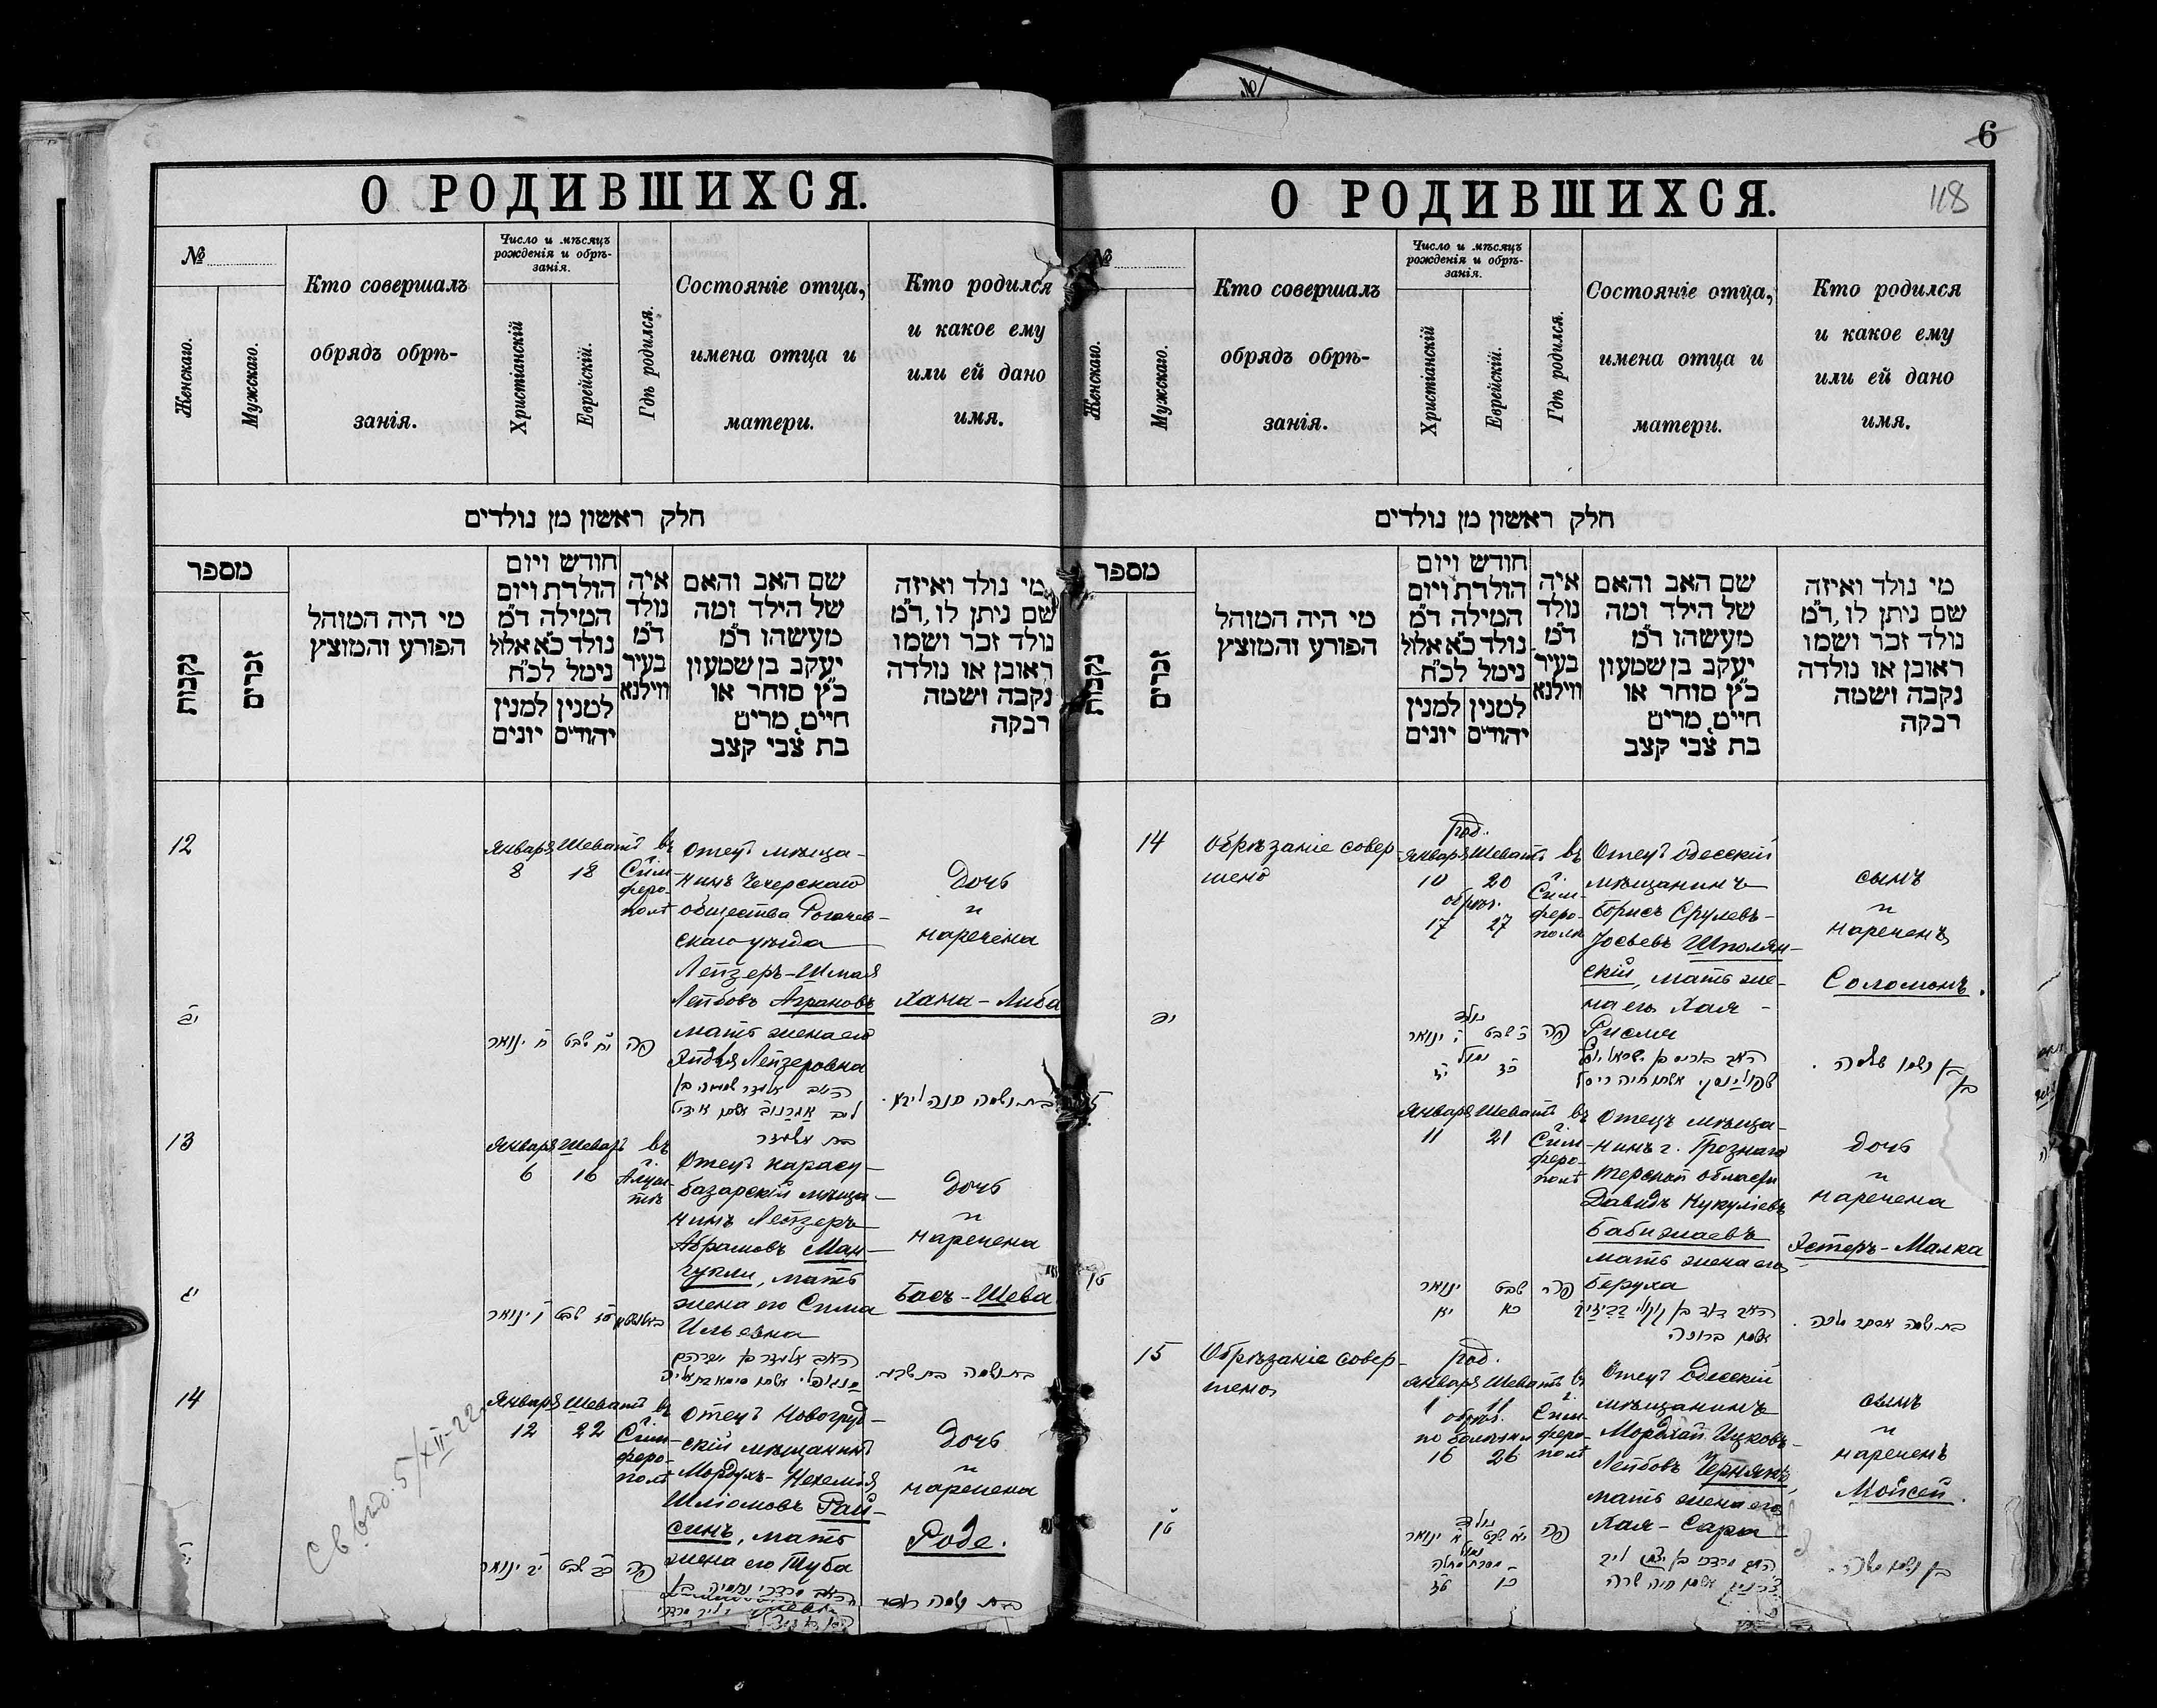 О РОДИВШИХСЯ.
№
Женскаго.
Мужскаго.
Кто совершалъ
обрядъ обрѣ-
занія.
Число и мѣсяцъ
рожденія и обрѣ-
занія.
Христіанскій
Еврейскій.
Гдѣ родился.
Состояніе отца,
имена отца и
матери.
Кто родился
и какое ему
или ей дано
имя.
חלק ראשון מן נולדים
מספר
נקבות
זכרים
מי היה המוהל
הפורע והמוצץ
חודש ויום
הולדת ויום
המילה ד״מ
נולד כ״א אלול
נימל לכ״ח
למנין
יונים
למנין
יהודים
איה
נולד
ד״מ
בעיר
ווילנא
שם האב והאם
של הילד ומה
מעשהו ד״מ
יעקב בן שמעון
כ״ץ סוחר או
חייט, מרים
בת צבי קצב
מי נולד ואיזה
שם ניתן לו, ד״מ
נולד זכר ושמו
ראובן או נולדה
נקבה ושמה
רבקה
12
Января
8
Шеватъ
18
въ
г.
Сим-
феро-
полѣ
Отецъ мѣща-
нинъ Чечерскаго
общества Рогачев-
скаго уѣзда
Лейзеръ-Шмая
Лейбовъ Аграновъ
мать жена его
Лейзеровна
Дочь
и
наречена
Хана-Либа
יב
ח ינואר
יח שבט
פה
בת ושמה חנה ליבא.
13
Января
6
Шеватъ
16
въ
г.
Алуш-
тѣ
Отецъ карасу-
базарскій мѣща-
нинъ Лейзеръ
Абрамовъ Ман-
гупли, мать
жена его Сима
Ильевна
Дочь
и
наречена
Басъ-Шева
יג
ו ינואר
טז שבט
באלושטא
בת ושמה בת שבע.
14
Января
12
Шеватъ
22
въ
г.
Сим-
феро-
полѣ
Отецъ Новогруд-
скій мѣщанинъ
Мордухъ-Нехемія
Шліомовъ Рай-
синъ, мать
жена его Туба
Дочь
и
наречена
Роде.
יב ינואר
כב שבט
פה
Св. выд. 5/XII-22
6
118
О РОДИВШИХСЯ.
№
Женскаго.
Мужскаго.
Кто совершалъ
обрядъ обрѣ-
занія.
Число и мѣсяцъ
рожденія и обрѣ-
занія.
Христіанскій
Еврейскій.
Гдѣ родился.
Состояніе отца,
имена отца и
матери.
Кто родился
и какое ему
или ей дано
имя.
חלק ראשון מן נולדים
מספר
נקבות
זכרים
מי היה המוהל
הפורע והמוצץ
חודש ויום
הולדת ויום
המילה ד״מ
נולד כ״א אלול
נימל לכ״ח
למנין
יונים
למנין
יהודים
איה
נולד
ד״מ
בעיר
ווילנא
שם האב והאם
של הילד ומה
מעשהו ד״מ
יעקב בן שמעון
כ״ץ סוחר או
חייט, מרים
בת צבי קצב
מי נולד ואיזה
שם ניתן לו, ד״מ
נולד זכר ושמו
ראובן או נולדה
נקבה ושמה
רבקה
14
Обрѣзаніе совер-
шено
род.
Января
10
Шеватъ
20
обрѣз.
17
27
въ
г.
Сим-
феро-
полѣ
Отецъ одесскій
мѣщанинъ
Борисъ Срулевъ-
Іосьевъ Шполян-
скій, мать же-
на его Хая-
Рисля
сынъ
и
нареченъ
Соломонъ.
נולד
י ינואר
כ שבט
פה
נמול
יז
כז
בן ושמו שלמה.
15
Января
11
Шеватъ
21
въ
г.
Сим-
феро-
полѣ
Отецъ мѣща-
нинъ г. Грознаго
Терской области
Давидъ Нукуліевъ
Бабижаевъ
мать жена его
Беруха
Дочь
и
наречена
Эстеръ-Малка
ינואר
יא
שבט
כא
פה
בת ושמה אסתר מלכה.
15
Обрѣзаніе совер-
шено
род.
Января
1
Шеватъ
11
обрѣз.
по болѣзни
16
26
въ
г.
Сим-
феро-
полѣ
Отецъ одесскій
мѣщанинъ
Мордхай-Ицковъ-
Лейбовъ Чернякъ
мать жена его
Хая-Сара
сынъ
и
нареченъ
Мойсей.
נולד
א ינואר
יא שבט
פה
נמול
טז
כו
בן ושמו משה.